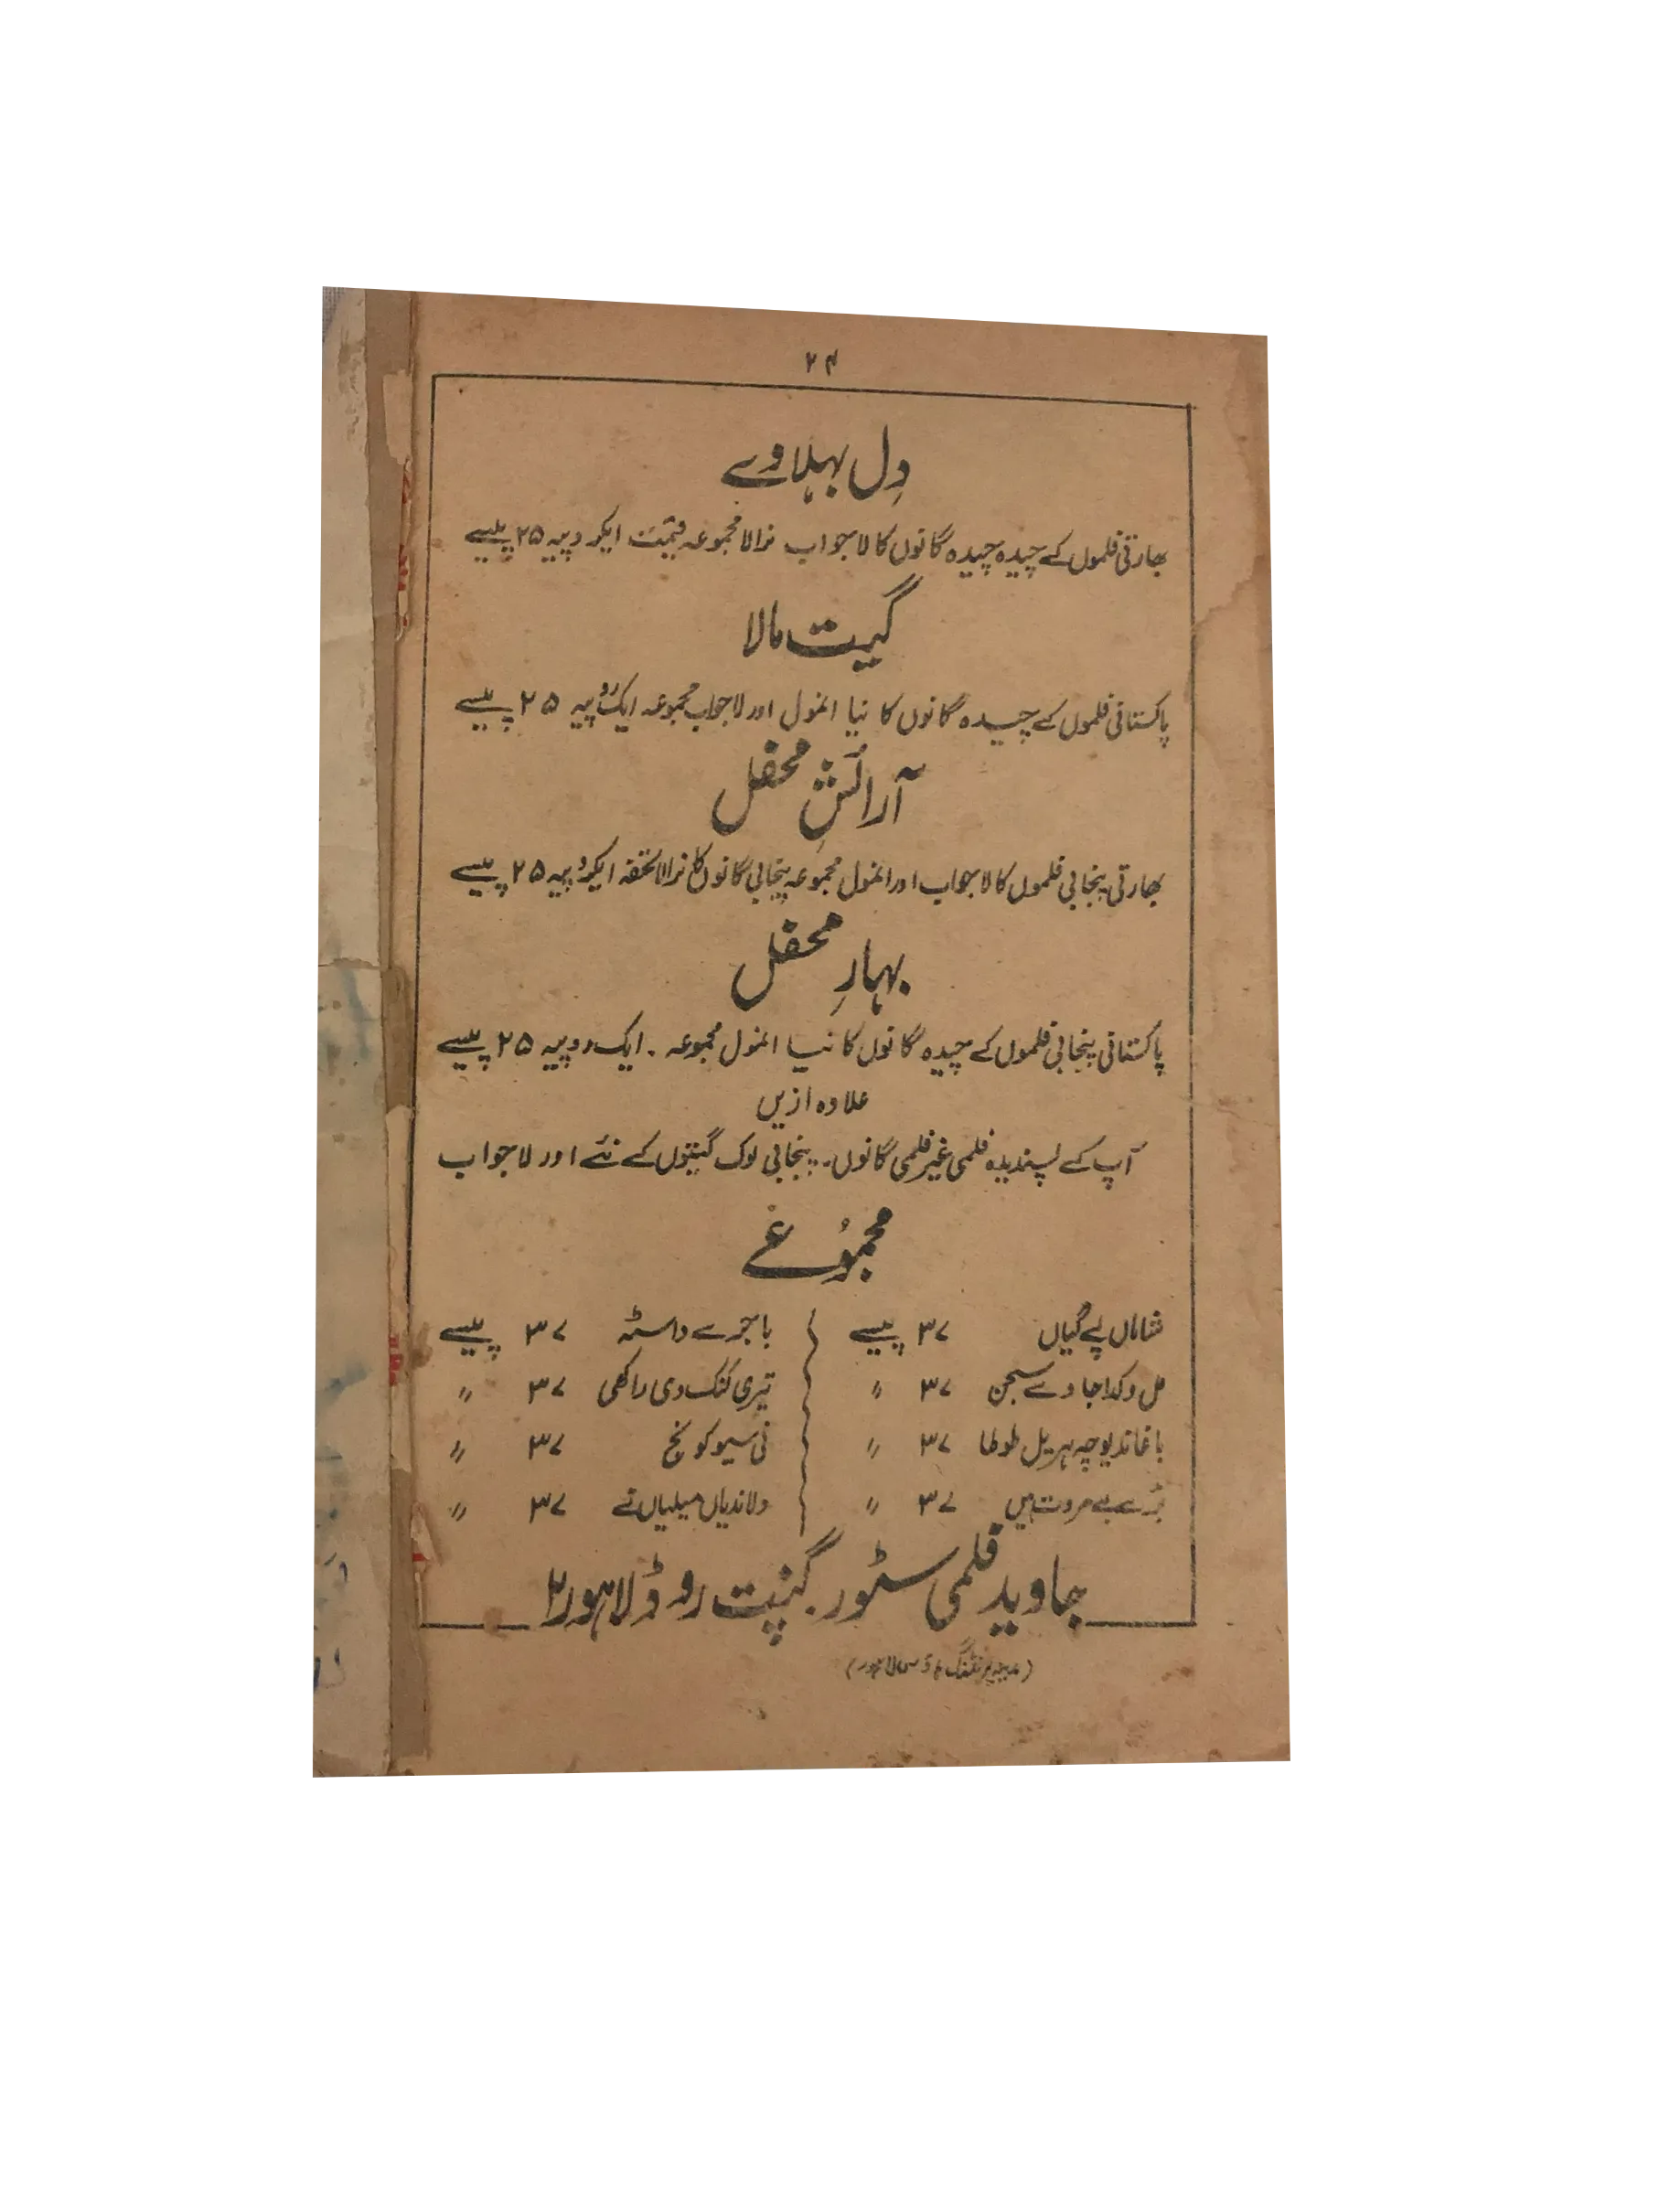 ۲۴
دِل بہلاوے
بھارتی فلموں کے چیدہ چیدہ گانوں کا لاجواب نرالا مجموعہ قیمت ایک روپیہ ۲۵ پیسے
گیت مالا
پاکستانی فلموں کے چیدہ گانوں کا نیا انمول اور لاجواب مجموعہ ایک روپیہ ۲۵ پیسے
آرائشِ محفل
بھارتی پنجابی فلموں کا لاجواب اور انمول مجموعہ پنجابی گانوں کا نرالا تحفہ ایک روپیہ ۲۵ پیسے
بہارِ محفل
پاکستانی پنجابی فلموں کے چیدہ گانوں کا نیا انمول مجموعہ ۔ ایک روپیہ ۲۵ پیسے
علاوہ ازیں
آپ کے پسندیدہ فلمی غیر فلمی گانوں ۔ پنجابی لوک گیتوں کے نئے اور لاجواب
مجموُعے
شاماں پے گیاں ۳۷ پیسے باجرے دا سٹہ ۳۷ پیسے
مل وکدا جاوے سجن ۳۷ " تیری کنک دی راکھی ۳۷ "
باغاندیوچہ ہریل طوطا ۳۷ " نی سیو کونج ۳۷ "
بڑے بے مروت ہیں ۳۷ " ولاندیاں میلیاں نے ۳۷ "
جاوید فلمی سٹور ۔ گنپت روڈ لاہور ۲
(مدینہ پرنٹنگ لاہور)